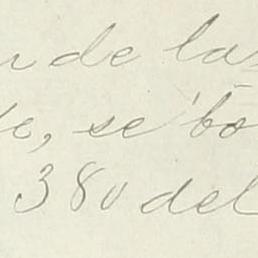 de las
se bo
380 del